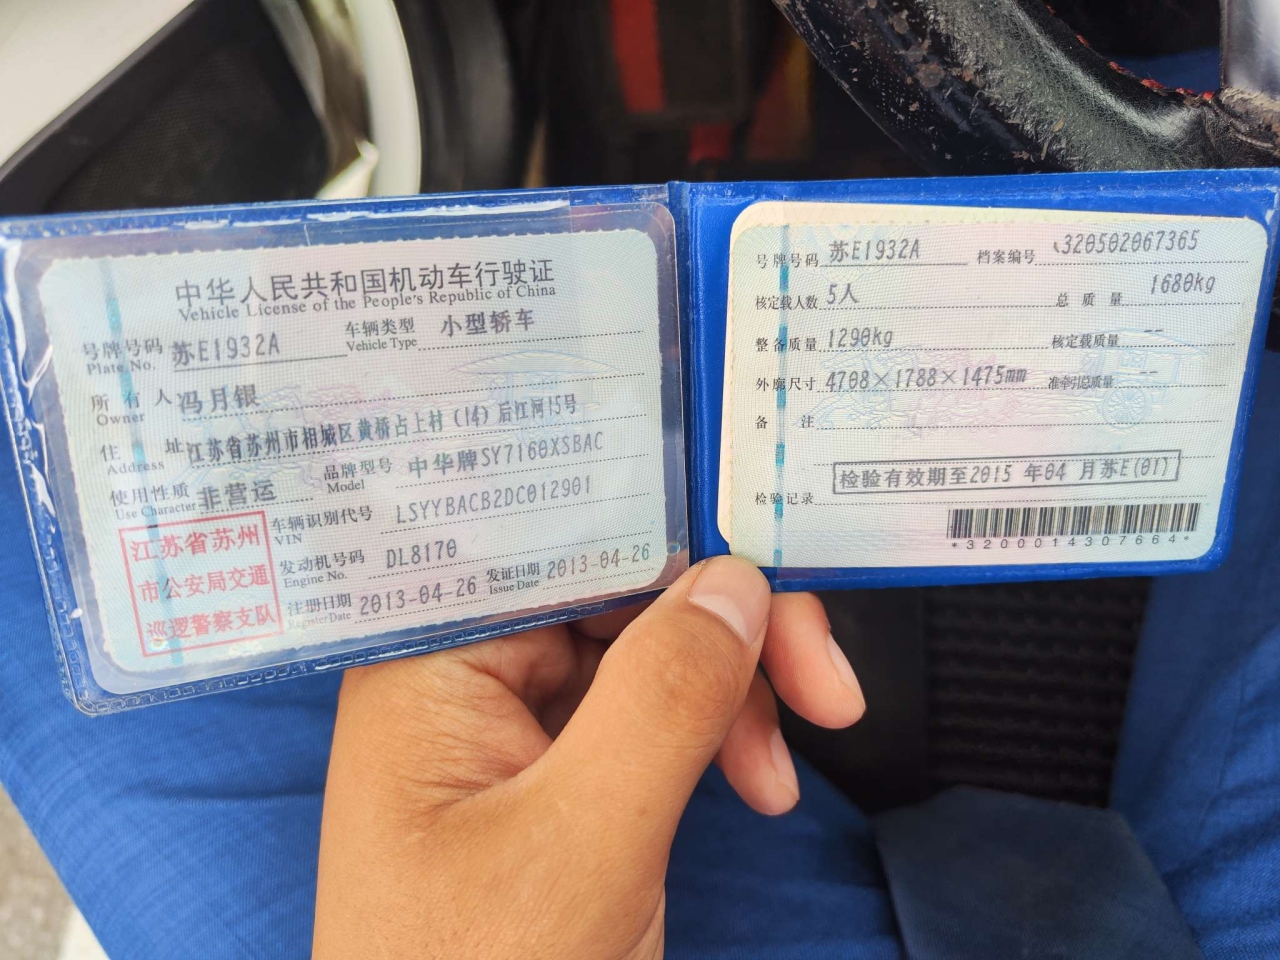 中华人民共和国机动车行驶证
Vehicle License of the People's Republic of China
号牌号码 苏E1932A 车辆类型 小型轿车
Plate No. Vehicle Type
所有人 冯月银
Owner
住址 江苏省苏州市相城区黄桥占上村(14)后江河15号
Address
使用性质 非营运 品牌型号 中华牌SY7160XSBAC
Use Character Model
车辆识别代号 LSYYBACB2DC012901
VIN
发动机号码 DL8170
Engine No.
注册日期 2013-04-26 发证日期 2013-04-26
Register Date Issue Date
江苏省苏州
市公安局交通
巡逻警察支队
号牌号码 苏E1932A 档案编号 320502067365
核定载人数 5人 总质量 1680kg
整备质量 1290kg 核定载质量 --
外廓尺寸 4708×1788×1475mm 准牵引总质量 --
备注
检验有效期至2015年04月苏E(01)
检验记录
*3200014307664*